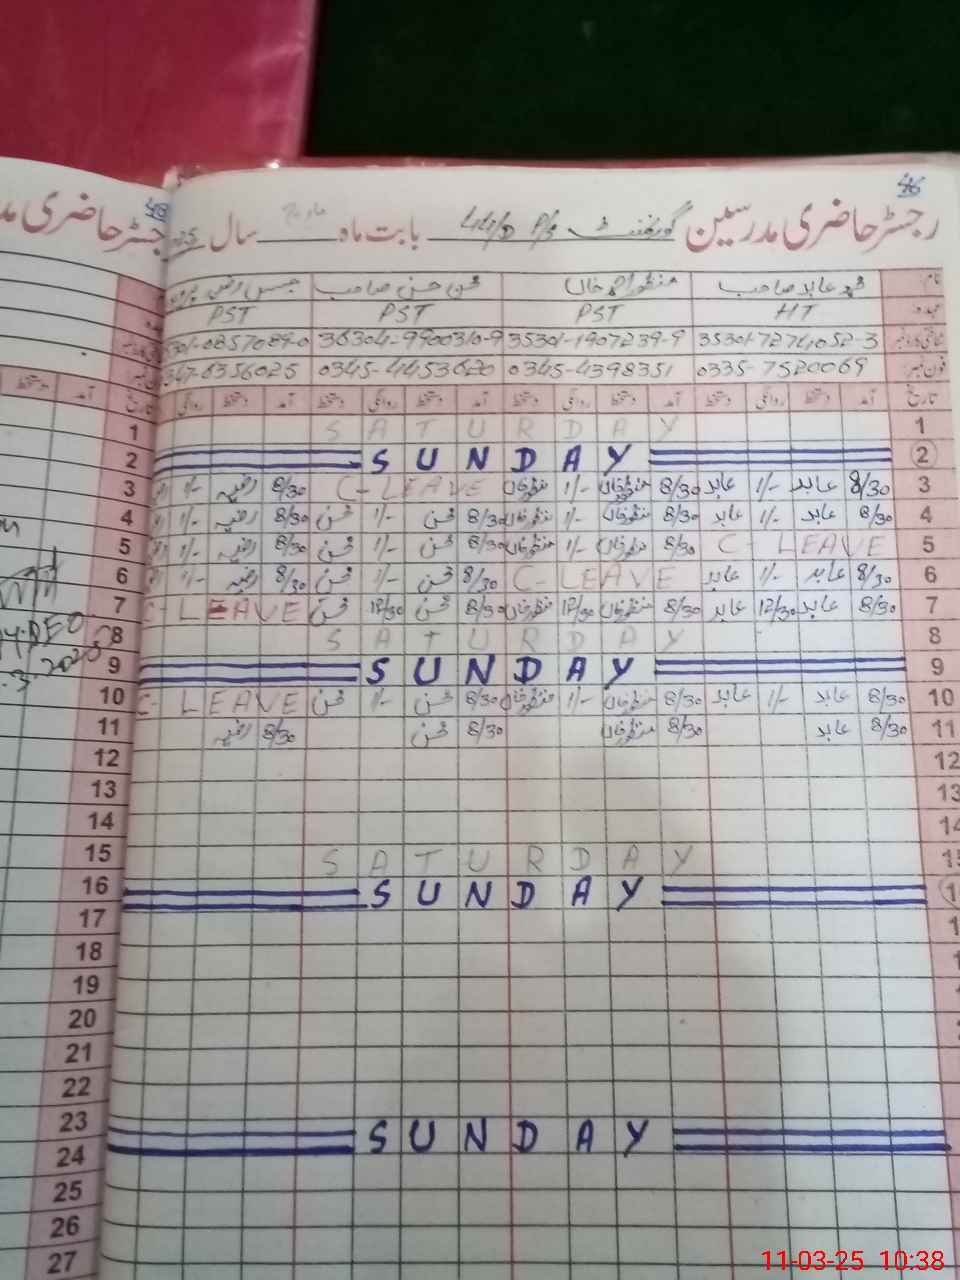 46
رجسٹر حاضری مدرسین گورنمنٹ P/S 44/D بابت ماہ مارچ سال
محمد عابد صاحب منظور احمد خاں محسن حسن صاحب
HT PST PST PST
35301-7274052-3 35301-1907239-9 36304-9900310-9 301-0857089-0
0335-7520069 0345-4398351 0345-4453620 347-6356025
تاریخ آمد دستخط روانگی دستخط آمد دستخط روانگی دستخط آمد دستخط روانگی دستخط آمد دستخط روانگی تاریخ
1 SATURDAY 1
2 SUNDAY 2
3 8/30 عابد 1/- عابد 8/30 منظور خاں 1/- منظور خاں C-LEAVE 8/30 رضیہ 1/- 3
4 8/30 عابد 1/- عابد 8/30 منظور خاں 1/- منظور خاں 8/30 محسن 1/- محسن 8/30 رضیہ 1/- 4
5 C-LEAVE 8/30 منظور خاں 1/- منظور خاں 8/30 محسن 1/- محسن 8/30 رضیہ 1/- 5
6 8/30 عابد 1/- عابد C-LEAVE 8/30 محسن 1/- محسن 8/30 رضیہ 1/- 6
7 8/30 عابد 12/30 عابد 8/30 منظور خاں 12/30 منظور خاں 8/30 محسن 12/30 محسن C-LEAVE 7
8 SATURDAY 8
9 SUNDAY 9
10 8/30 عابد 1/- عابد 8/30 منظور خاں 1/- منظور خاں 8/30 محسن 1/- محسن C-LEAVE 10
11 8/30 عابد 8/30 منظور خاں 8/30 محسن 8/30 رضیہ 11
12 12
13 13
14 14
15 SATURDAY 15
16 SUNDAY
17
18
19
20
21
22
23 SUNDAY
24
25
26
27
11-03-25 10:38